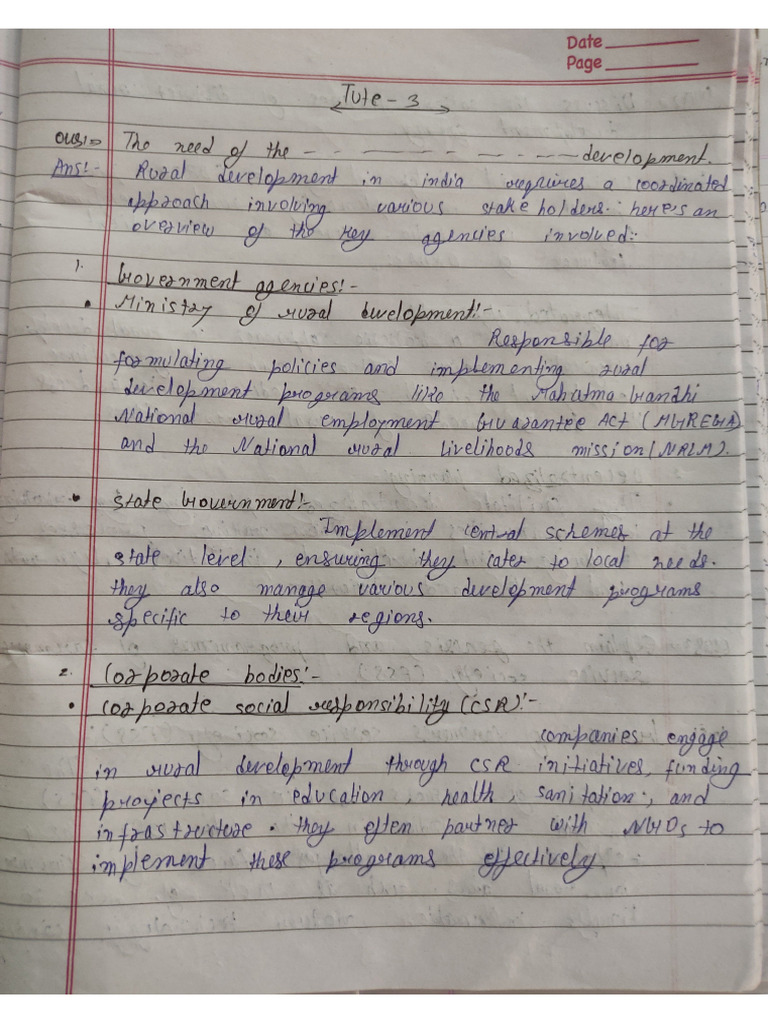 Date
Page
Tute - 3
Ques:⇒ The need of the - - - - - - - - - development.
Ans!- Rural development in india requires a coordinated
approach involving various stake holders. here's an
overview of the key agencies involved:
1. Government agencies!-
• Ministry of rural development!-
Responsible for
formulating policies and implementing rural
development programs like the Mahatma Gandhi
National rural employment Guarantee Act (MGREGA)
and the National rural Livelihoods mission (NRLM).
• State Government!-
Implement central schemes at the
state level, ensuring they cater to local needs.
they also manage various development programs
specific to their regions.
2. Corporate bodies!-
• Corporate social responsibility (CSR)!-
companies engage
in rural development through CSR initiatives, funding
proyects in education, health, sanitation, and
infrastructure. they often partner with NGOs to
implement these programs effectively.